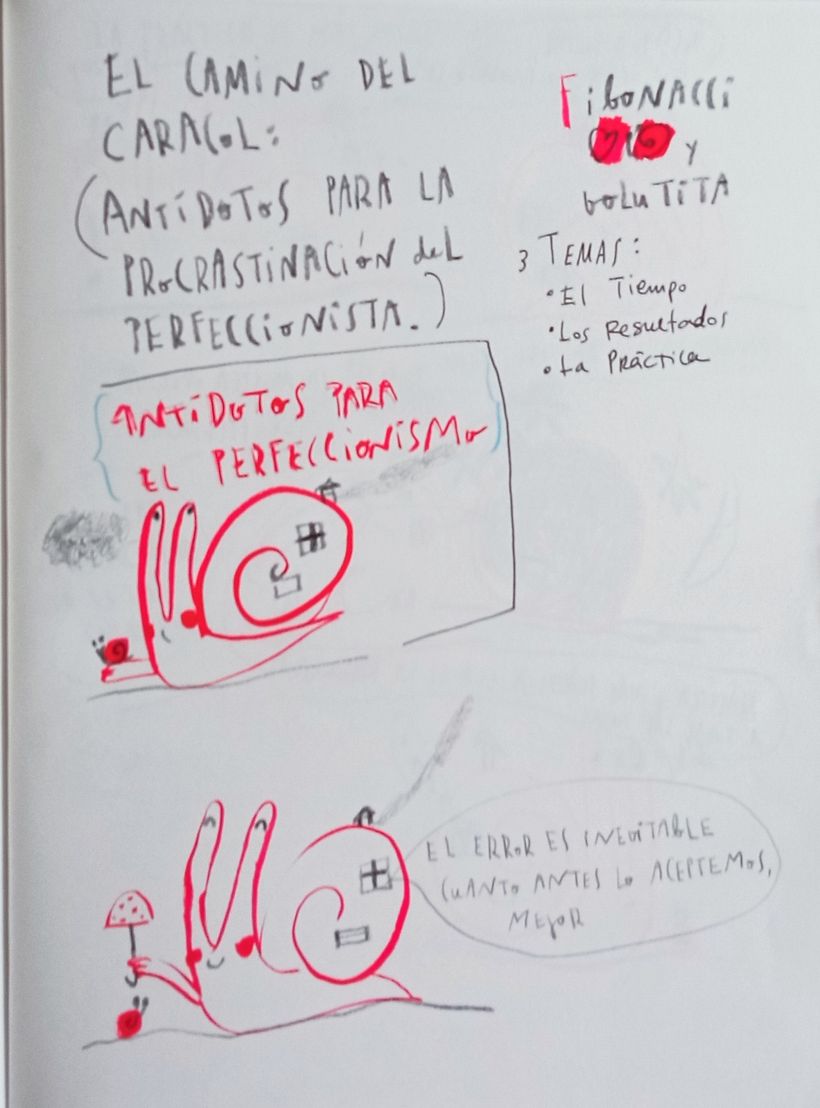 EL CAMINO DEL
CARACOL:
(ANTÍDOTOS PARA LA
PROCRASTINACIÓN del
PERFECCIONISTA.)
FiboNACCi
y
VoluTiTA
3 TEMAS:
• El Tiempo
• Los Resultados
• La PRÁCTICA
ANTÍDOTOS PARA
EL PERFECCIONISMO
EL ERROR ES INEVITABLE
CUANTO ANTES LO ACEPTEMOS,
MEJOR